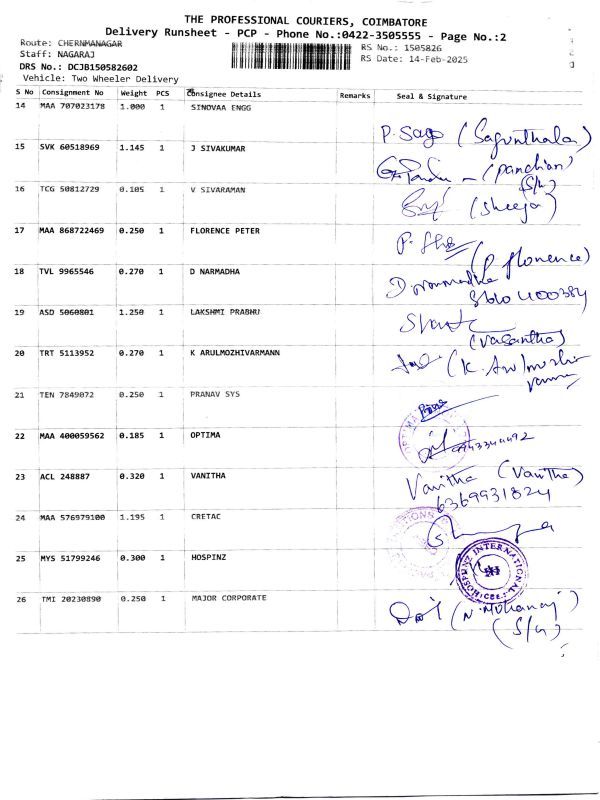 THE PROFESSIONAL COURIERS, COIMBATORE
Delivery Runsheet - PCP - Phone No.:0422-3505555 - Page No.:2
Route: CHERNMANAGAR
RS No.: 1505826
Staff: NAGARAJ
RS Date: 14-Feb-2025
DRS No.: DCJB150582602
Vehicle: Two Wheeler Delivery
S No Consignment No Weight PCS Consignee Details Remarks Seal & Signature
14 MAA 707023178 1.000 1 SINOVAA ENGG
P. Sago (Sagunthala)
15 SVK 60518969 1.145 1 J SIVAKUMAR
(pandian)
(S/G)
16 TCG 50812729 0.105 1 V SIVARAMAN
(sheeja)
17 MAA 868722469 0.250 1 FLORENCE PETER
(P. florence)
18 TVL 9965546 0.270 1 D NARMADHA
D. narmadha
19 ASD 5060801 1.250 1 LAKSHMI PRABHU
(Vasantha)
20 TRT 5113952 0.270 1 K ARULMOZHIVARMANN
21 TEN 7849072 0.250 1 PRANAV SYS
22 MAA 400059562 0.185 1 OPTIMA
23 ACL 248887 0.320 1 VANITHA
Vanitha (Vanitha)
6369931824
24 MAA 576979100 1.195 1 CRETAC
25 MYS 51799246 0.300 1 HOSPINZ
HOSPINZ INTERNATIONAL
26 TMI 20230890 0.250 1 MAJOR CORPORATE
(N. Mohanaj)
(S/G)